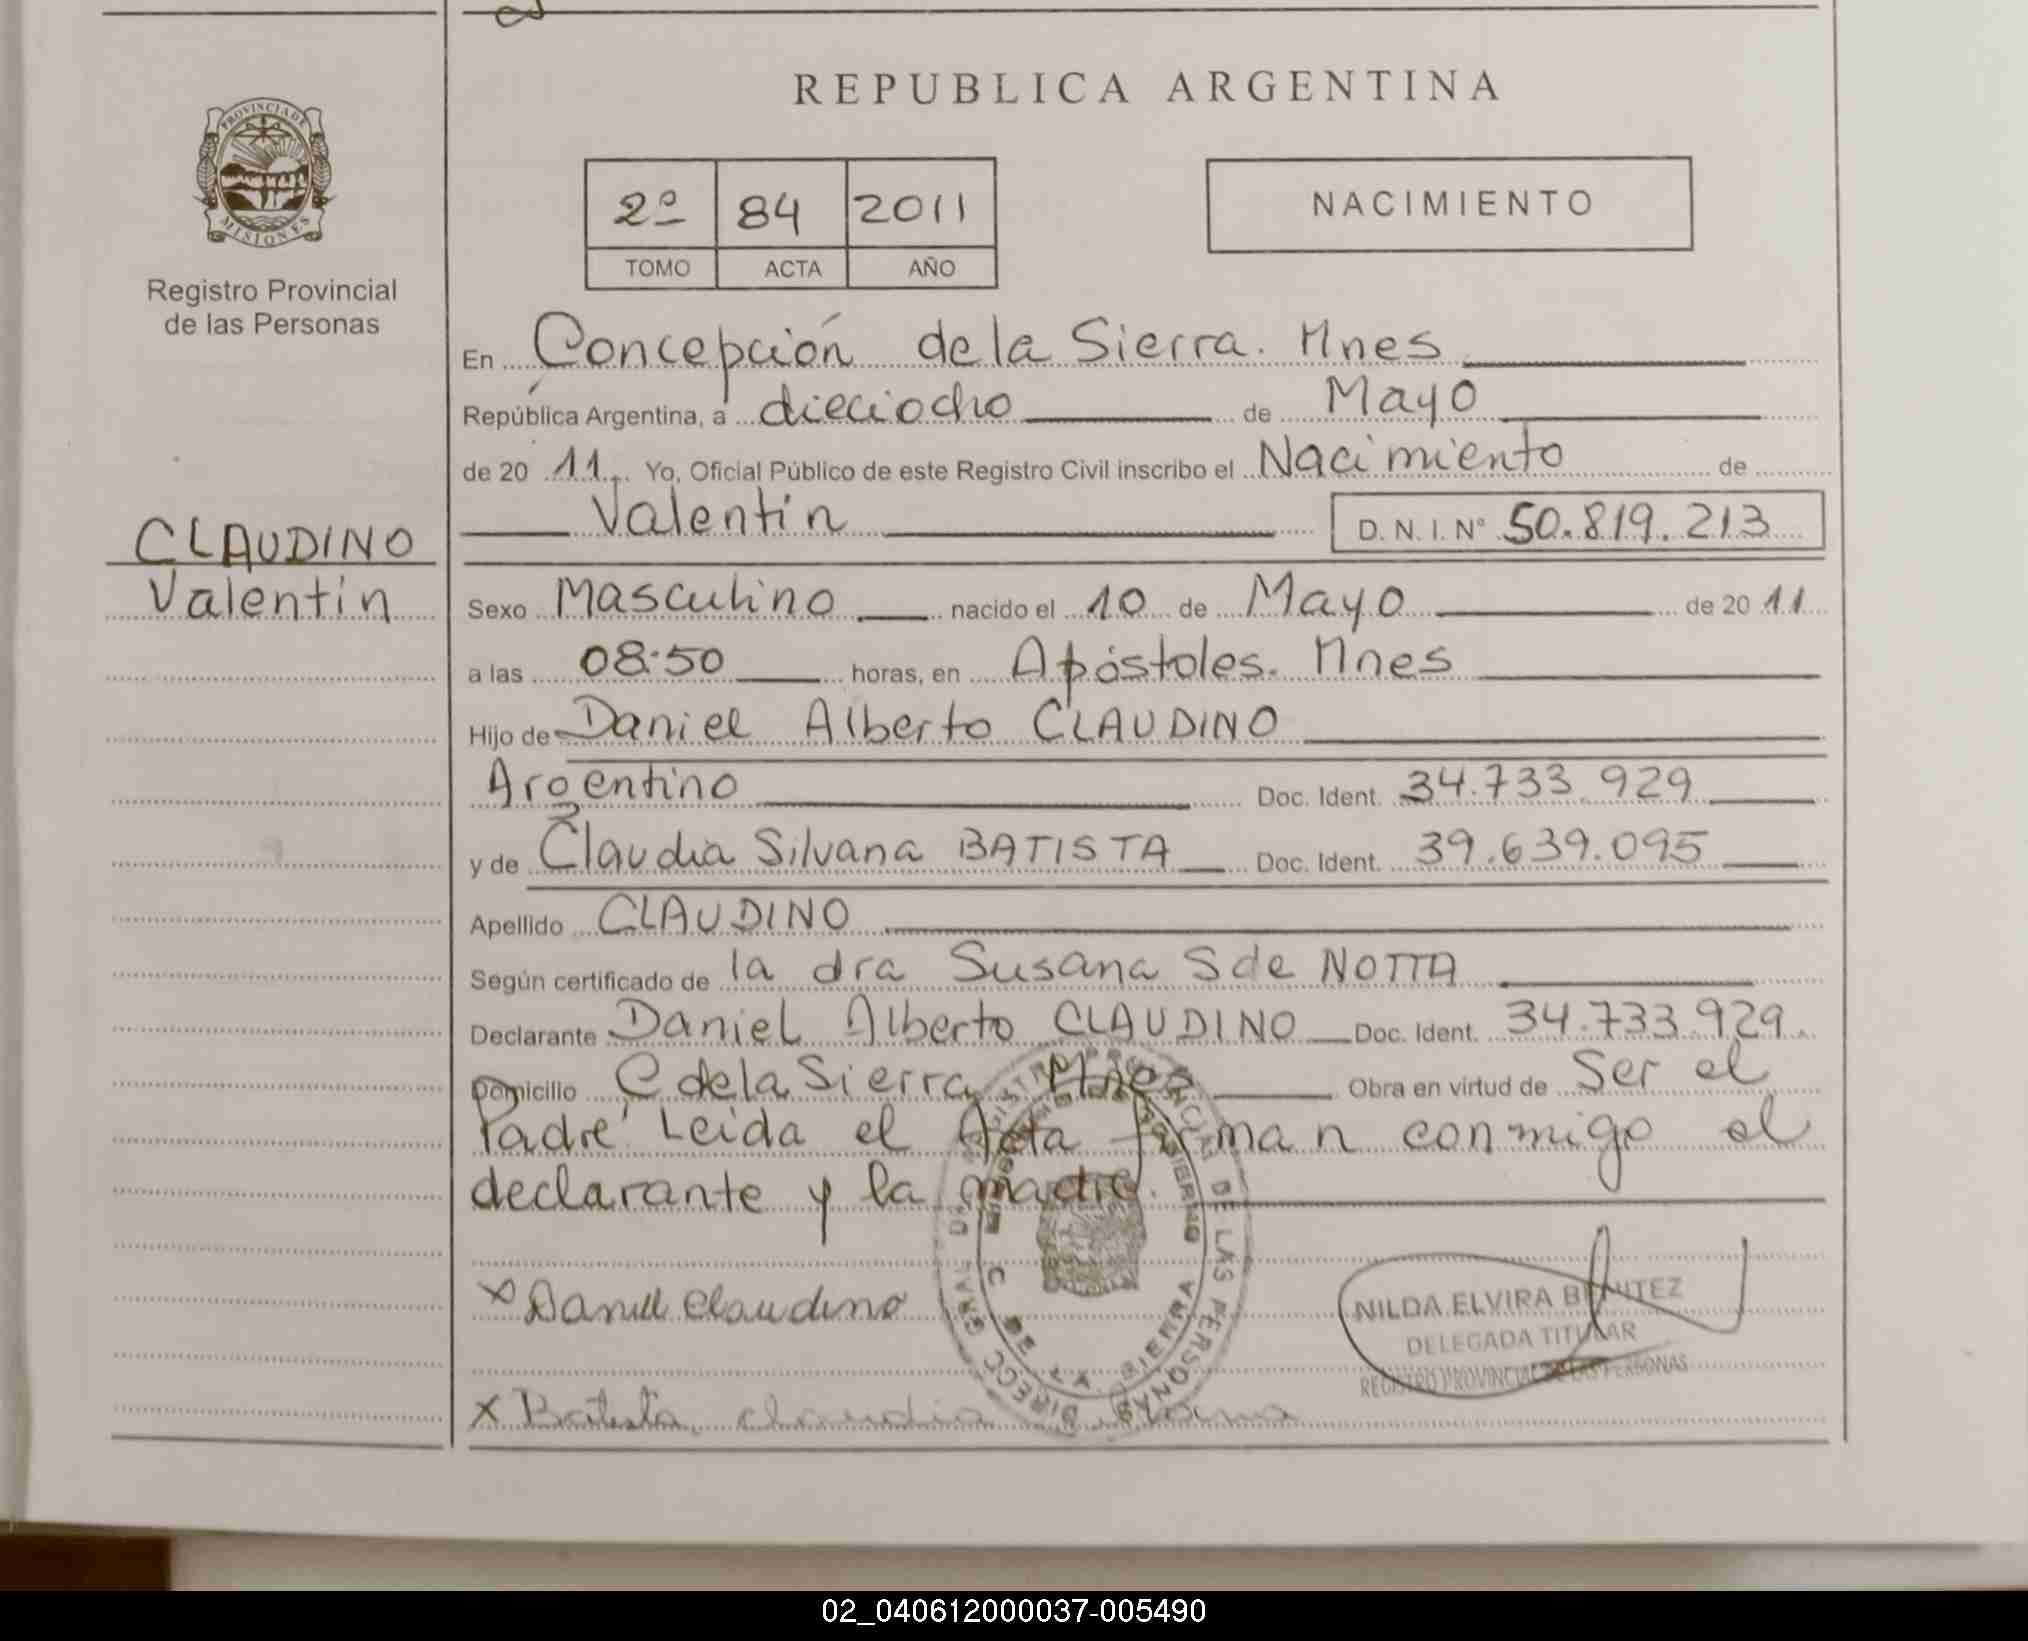 REPUBLICA ARGENTINA
PROVINCIA DE
MISIONES
Registro Provincial
de las Personas
2º 84 2011
TOMO ACTA AÑO
NACIMIENTO
En Concepción de la Sierra. Mnes
República Argentina, a dieciocho de Mayo
de 20 11 Yo, Oficial Público de este Registro Civil inscribo el Nacimiento de
Valentín D. N. I. Nº 50.819.213
CLAUDINO
Valentín
Sexo Masculino nacido el 10 de Mayo de 20 11
a las 08:50 horas, en Apóstoles. Mnes
Hijo de Daniel Alberto CLAUDINO
Argentino Doc. Ident. 34.733.929
y de Claudia Silvana BATISTA Doc. Ident. 39.639.095
Apellido CLAUDINO
Según certificado de la dra Susana S de NOTTA
Declarante Daniel Alberto CLAUDINO Doc. Ident. 34.733.929
Domicilio C de la Sierra Mnes Obra en virtud de Ser el
Padre Leida el Acta firman conmigo el
declarante y la madre.
x Daniel Claudino
NILDA ELVIRA BENITEZ
DELEGADA TITULAR
REGISTRO PROVINCIAL DE LAS PERSONAS
x Batista, claudia
DE LAS PERSONAS
C DE LA SIERRA
02_040612000037-005490